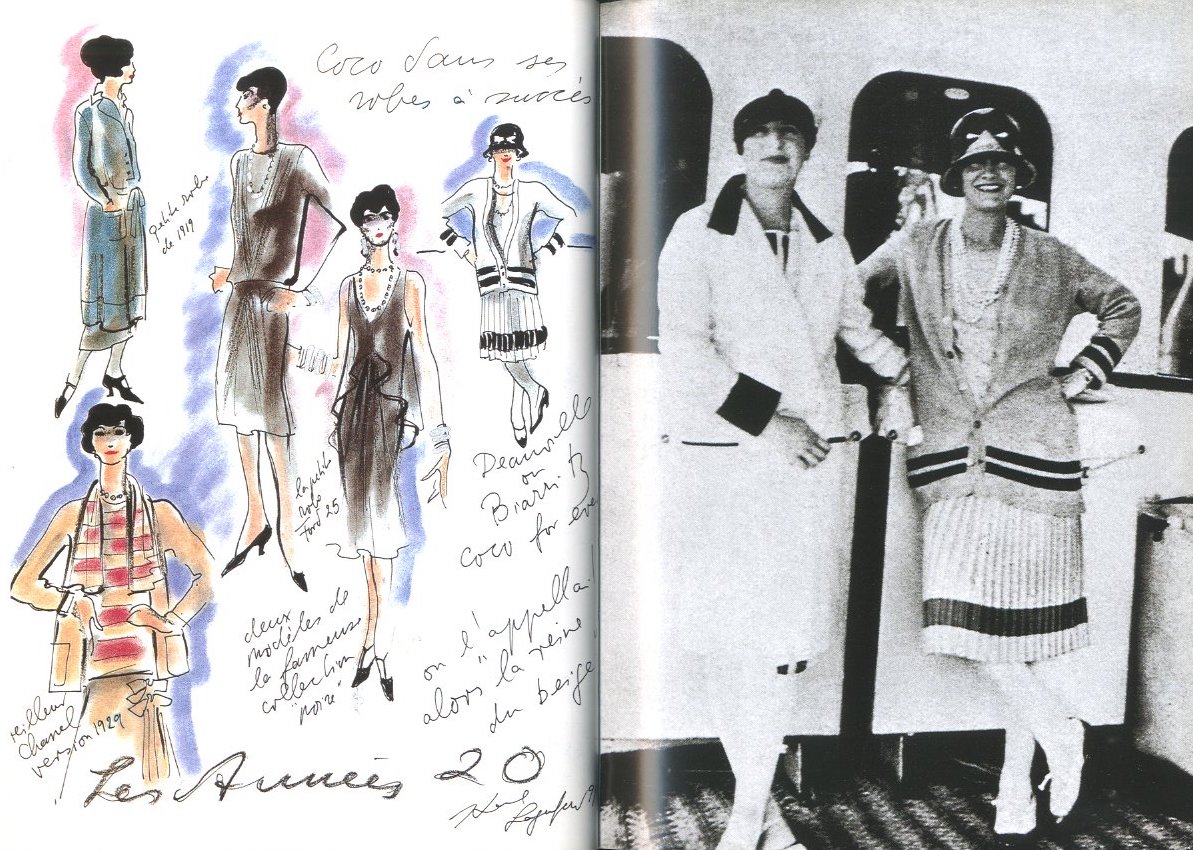 Coco dans ses
robes à succès
petite robe
de 1919
la petite
robe
Ford 25
Deauville
ou
Biarritz
coco for eve
deux
modèles de
la fameuse
collection
"noire"
on l'appellai
alors "la reine
du beige
Chanel
version 1929
Les Années 20